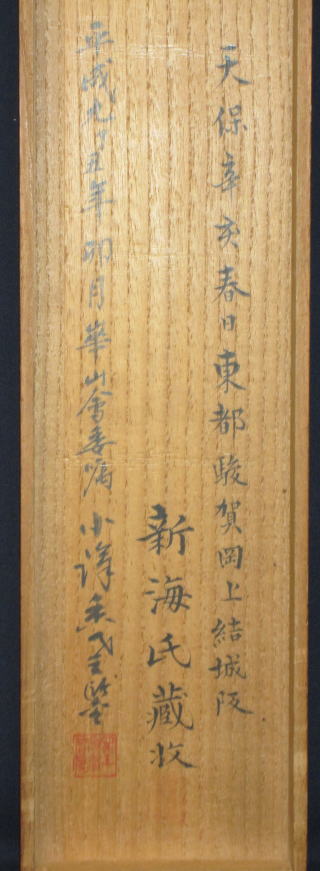 天保辛亥春日東都駿賀岡上結城阪
新海氏藏收
平成五年卯月崋山會委嘱 小澤